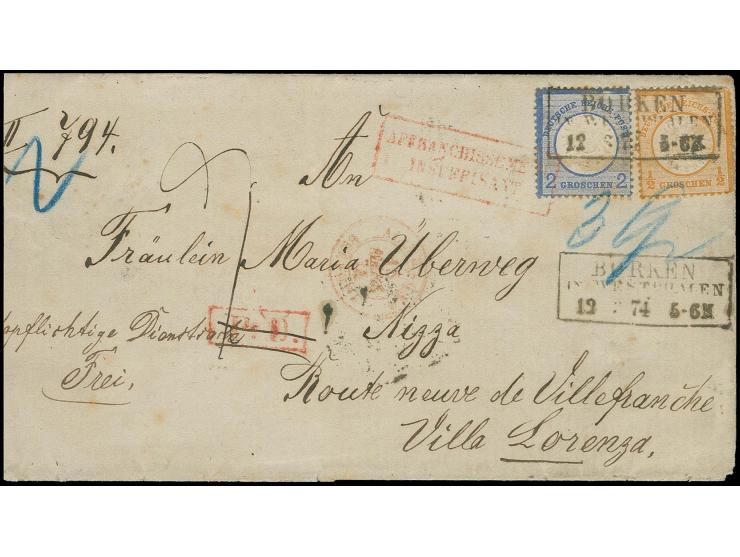 II 794.
2
An
AFFRANCHISSEMENT
INSUFFISANT
DEUTSCHE REICHS-POST
2 GROSCHEN 2
1/2 GROSCHEN 1/2
BORKEN
12 5-6N
3 Gr
BORKEN
IN WESTPHALEN
12 74 5-6N
Fräulein Maria Überweg
P.D.
Nizza
pflichtige Dienstsache
Frei.
Route neuve de Villefranche
Villa Lorenza,